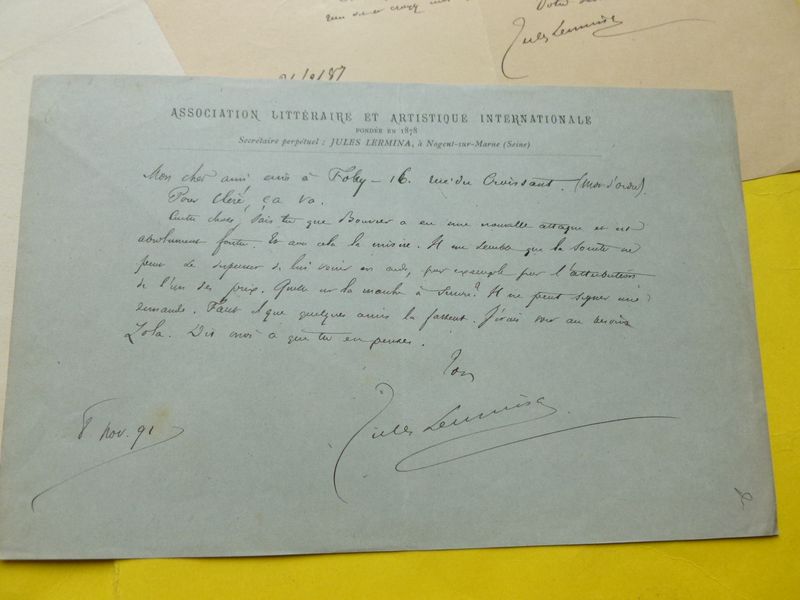 Votre
Jules Lermina
ASSOCIATION LITTÉRAIRE ET ARTISTIQUE INTERNATIONALE
FONDÉE EN 1878
Secrétaire perpétuel : JULES LERMINA, à Nogent-sur-Marne (Seine)
Mon cher ami, écris à Foley – 16, rue du Croissant. (Mon d'ordre).
Pour Cléré, ça va.
Autre chose, sais tu que Bouvier a eu une nouvelle attaque et est
absolument foutu. Et avec cela la misère. Il me semble que la Société ne
peut se dispenser de lui venir en aide, par exemple par l'attribution
de l'un des prix. Quelle est la marche à suivre? Il ne peut signer une
demande. Faut il que quelques amis la fassent. J'irais voir au besoin
Zola. Dis moi ce que tu en penses.
Ton
Jules Lermina
8 nov. 91